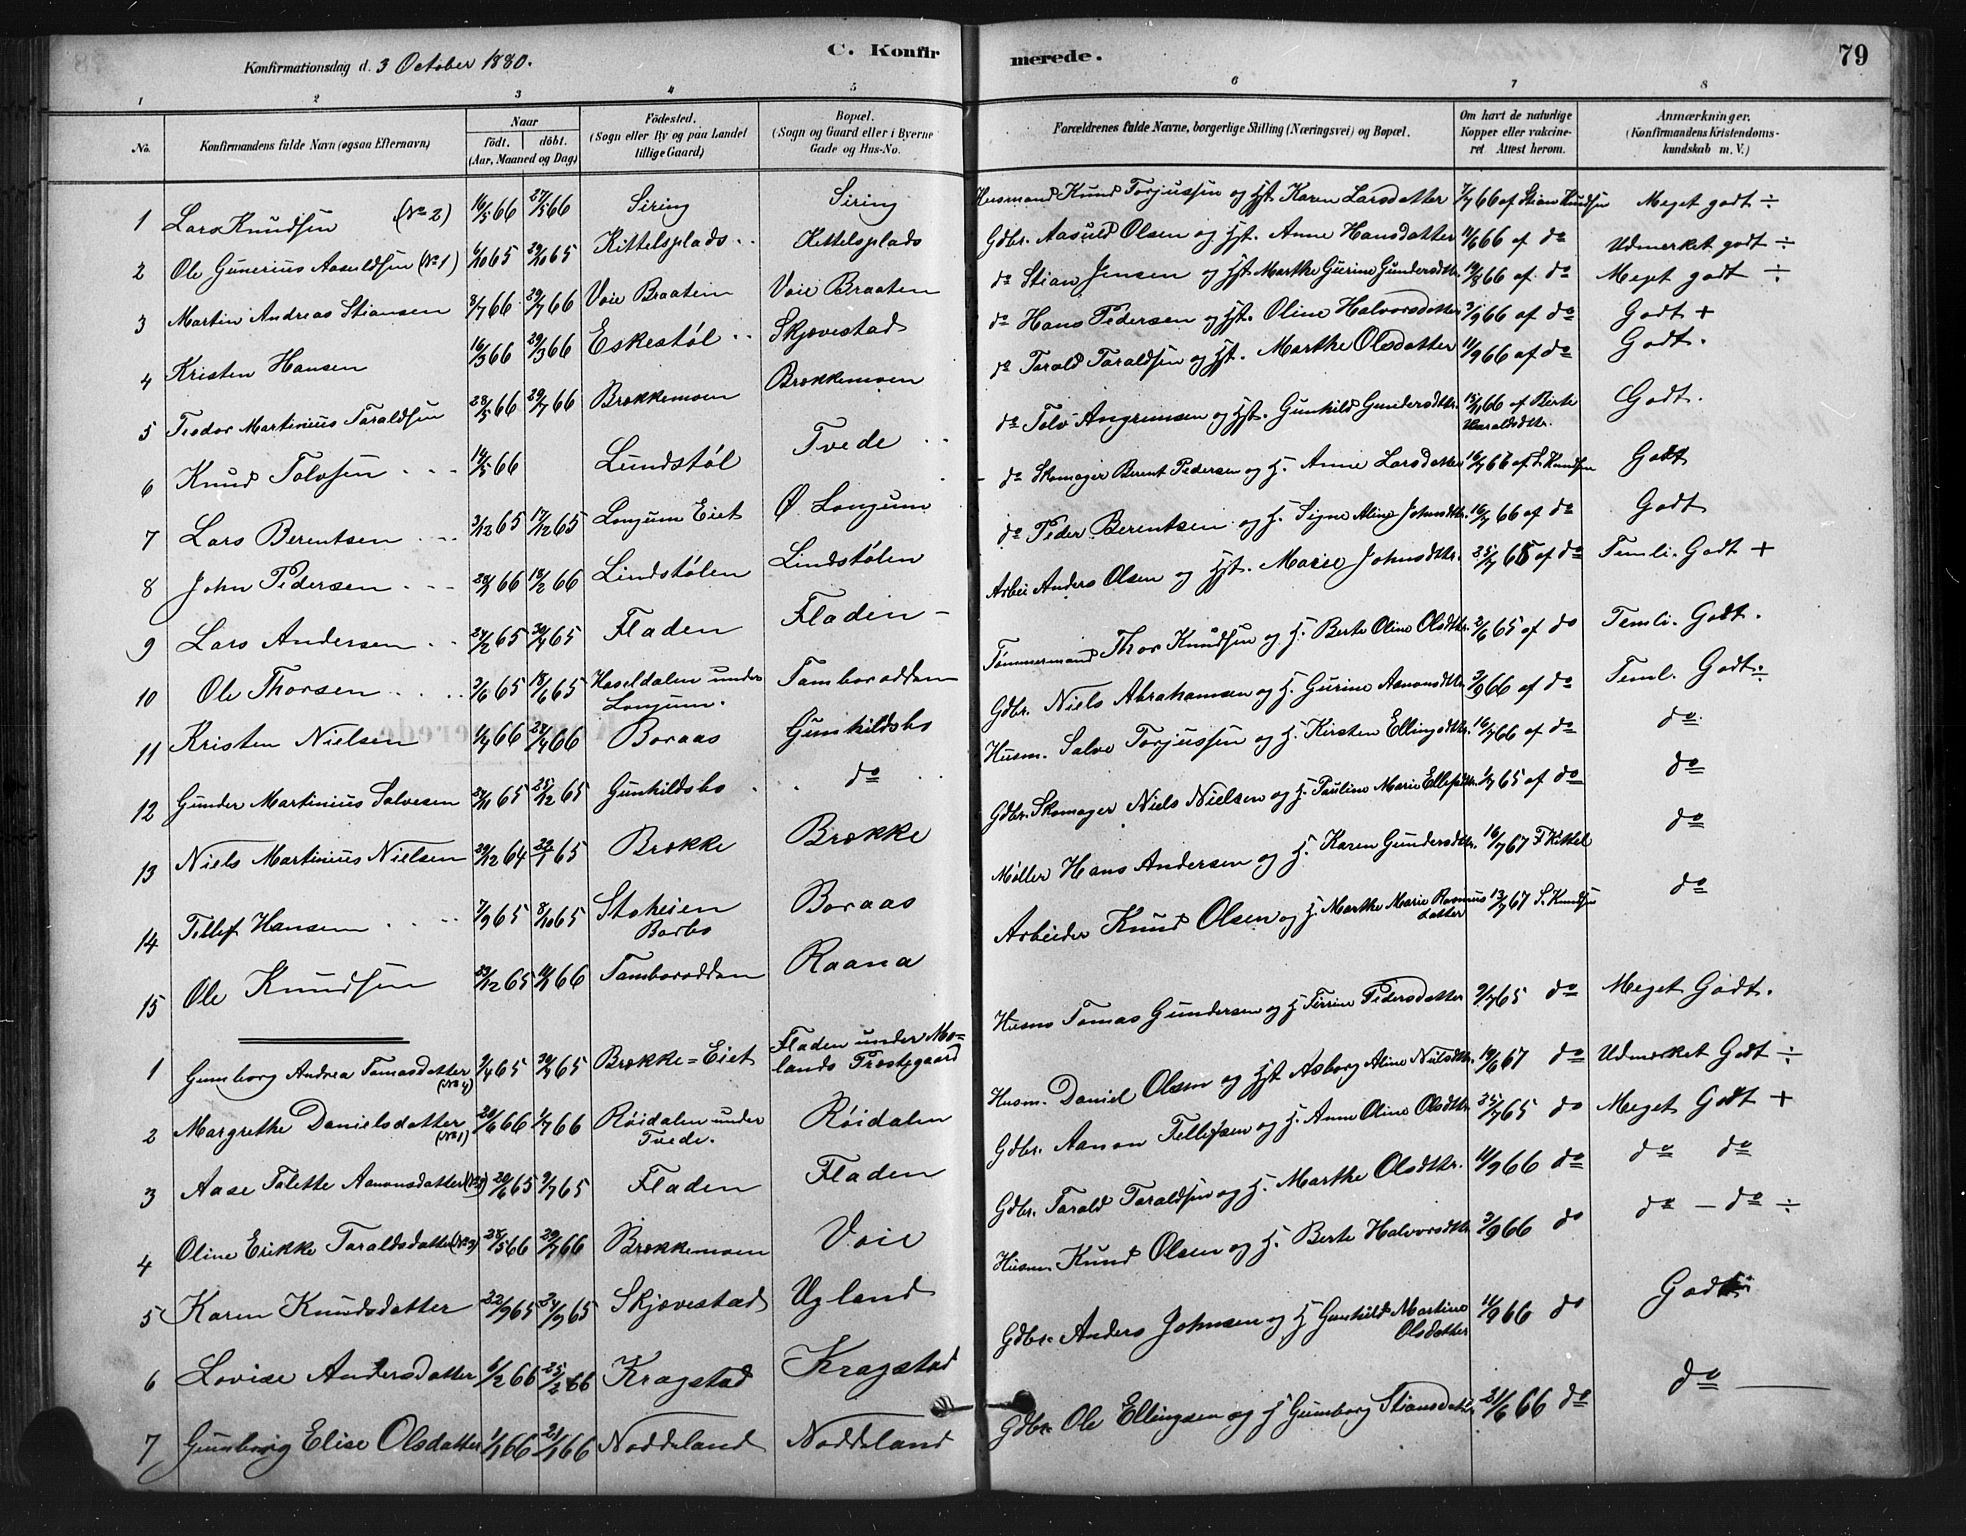 Konfirmationsdag d. 3 October 1880.
C. Konfirmerede.
79
1 2 3 4 5 6 7 8
No.
Konfirmandens fulde Navn (ogsaa Efternavn)
Naar
födt. döbt.
(Aar, Maaned og Dag)
Födested.
(Sogn eller By og paa Landet tillige Gaard)
Bopæl.
(Sogn og Gaard eller i Byerne Gade og Hus-No.
Forældrenes fulde Navne, borgerlige Stilling (Næringsvei) og Bopæl.
Om havt de naturlige Kopper eller vakcineret Attest herom.
Anmærkninger.
(Konfirmandens Kristendomskundskab m. V.)
1 Lars Knudsen (No 2) 16/5 66 27/5 66 Siring Siring Husmand Knud Torjussen og Hst. Karen Larsdatter 7/7 66 af Stian Knudsen Meget godt ÷
2 Ole Gunerius Aasuldsen (No 1) 6/10 65 29/10 65 Kittelsplads Kittelsplads Gdbr. Aasuld Olsen og Hst. Anne Hansdatter 11/6 66 af do Udmerket godt ÷
3 Martin Andreas Stiansen 8/7 66 29/7 66 Voie Braaten Voie Braaten do Stian Jensen og Hst. Marthe Gurine Gundersdtr. 19/8 66 af do Meget godt ÷
4 Kristen Hansen 16/3 66 29/3 66 Eskestøl Skjævestad do Hans Pedersen og Hst. Oline Halvorsdatter 3/9 66 af do Godt +
5 Teodor Martinius Taraldsen 28/5 66 29/7 66 Brækkemoen Brækkemoen do Tarald Taraldsen og Hst. Marthe Olsdatter 11/9 66 af do Godt.
6 Knud Tolvsen 14/5 66 Lundstøl Tvede do Tolv Angrimsen og Hst. Gunhild Gundersdtr. 66 af Berte Haraldsdtr. Godt.
7 Lars Berentsen 3/12 65 17/12 65 Longum Eiet Ø. Longum do Skomager Berent Pedersen og H. Anne Larsdatter 16/7 66 af S. Knudsen Godt
8 John Pedersen 66 18/2 66 Lindstølen Lindstølen do Peder Berentsen og H. Signe Aline Johnsdtr. 16/7 66 af do Godt
9 Lars Andersen 24/2 65 30/4 65 Fladen Fladen Arbei Anders Olsen og Hst. Marie Johnsdtr. 25/7 65 af do Temli. Godt +
10 Ole Thorsen 2/6 65 18/6 65 Hasseldalen under Longum. Tamborodden Tømmermand Thor Knudsen og H. Berte Oline Olsdtr. 2/6 65 af do Temli. Godt.
11 Kristen Nielsen 1/4 66 24/4 66 Boraas Gunhildsbo Gdbr. Niels Abrahamsen og H. Gurine Aanonsdtr. 3/9 66 af do Teml. Godt ÷
12 Gunder Martinius Salvesen 24/11 65 25/12 65 Gunhildsbo do Husm. Salve Torjussen og H. Kirsten Ellingsdtr. 16/7 66 af do do
13 Niels Martinius Nielsen 29/12 64 22/1 65 Brække Brække Gdbr. Skomager Niels Nielsen og H. Pauline Marie Ellefsdtr. 1/7 65 af do do
14 Tellef Hansen 7/9 65 8/10 65 Stoheien Barbo Boraas Møller Hans Andersen og H. Karen Gundersdtr. 16/7 67 F Kittel do
15 Ole Knudsen 23/12 65 66 Tamborodden Raana Arbeider Knud Olsen og H. Marthe Marie Rasmusdatter 13/7 67 S. Knudsen do
1 Gunborg Andrea Tomasdatter (No 4) 9/4 65 30/4 65 Brække-Eiet Fladen under Molands Præstegaard Husm Tomas Gundersen og H Terrine Pedersdatter 9/7 65 do Meget Godt.
2 Margrethe Danielsdatter (No 1) 20/6 66 1/7 66 Røidalen under Tvede. Røidalen Husm. Daniel Olsen og Hst Asborg Aline Nielsdtr. 19/6 67 do Udmerket Godt ÷
3 Aase Talette Aanonsdatter 20/6 65 9/7 65 Fladen Fladen Gdbr. Aanon Tellefsen og H. Anne Oline Olsdtr. 25/7 65 do Meget Godt +
4 Oline Erikke Taraldsdatter (No 3) 28/5 66 29/7 66 Brækkemoen Voie Gdbr. Tarald Taraldsen og H. Marthe Olsdtr. 11/9 66 do do do
5 Karen Knudsdatter 22/9 65 24/9 65 Skjævestad Ugland Husm Knud Olsen og H. Berte Halvorsdtr. 3/9 66 do do - do ÷
6 Lovise Andersdatter 6/2 66 25/2 66 Kragstad Kragstad Gdbr. Anders Johnsen og H Gunhild Martine Olsdatter 11/9 66 do Godt
7 Gunborg Elise Olsdatter 1/1 66 21/1 66 Noddeland Noddeland Gdbr. Ole Ellingsen og H Gunborg Stiansdatter 21/6 66 do do